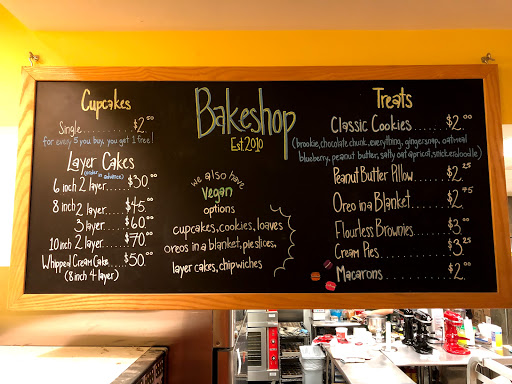 Cupcakes
Single........ $2.50
for every 5 you buy, you get 1 free!
Layer Cakes
(order in advance)
6 inch 2 layer.....$30.00
8 inch 2 layer.....$45.00
3 layer.....$60.00
10 inch 2 layer.....$70.00
Whipped Cream Cake....$50.00
(8 inch 4 layer)
Bakeshop
Est. 2010
we also have
vegan
options
cupcakes, cookies, loaves
oreos in a blanket, pie slices,
layer cakes, chipwiches
Treats
Classic Cookies.....$2.00
(brookie, chocolate chunk, everything, gingersnap, oatmeal
blueberry, peanut butter, salty oat apricot, snickerdoodle)
Peanut Butter Pillow....$2.25
Oreo in a Blanket......$2.95
Flourless Brownies.....$3.00
Cream Pies..........$3.25
Macarons..........$2.00